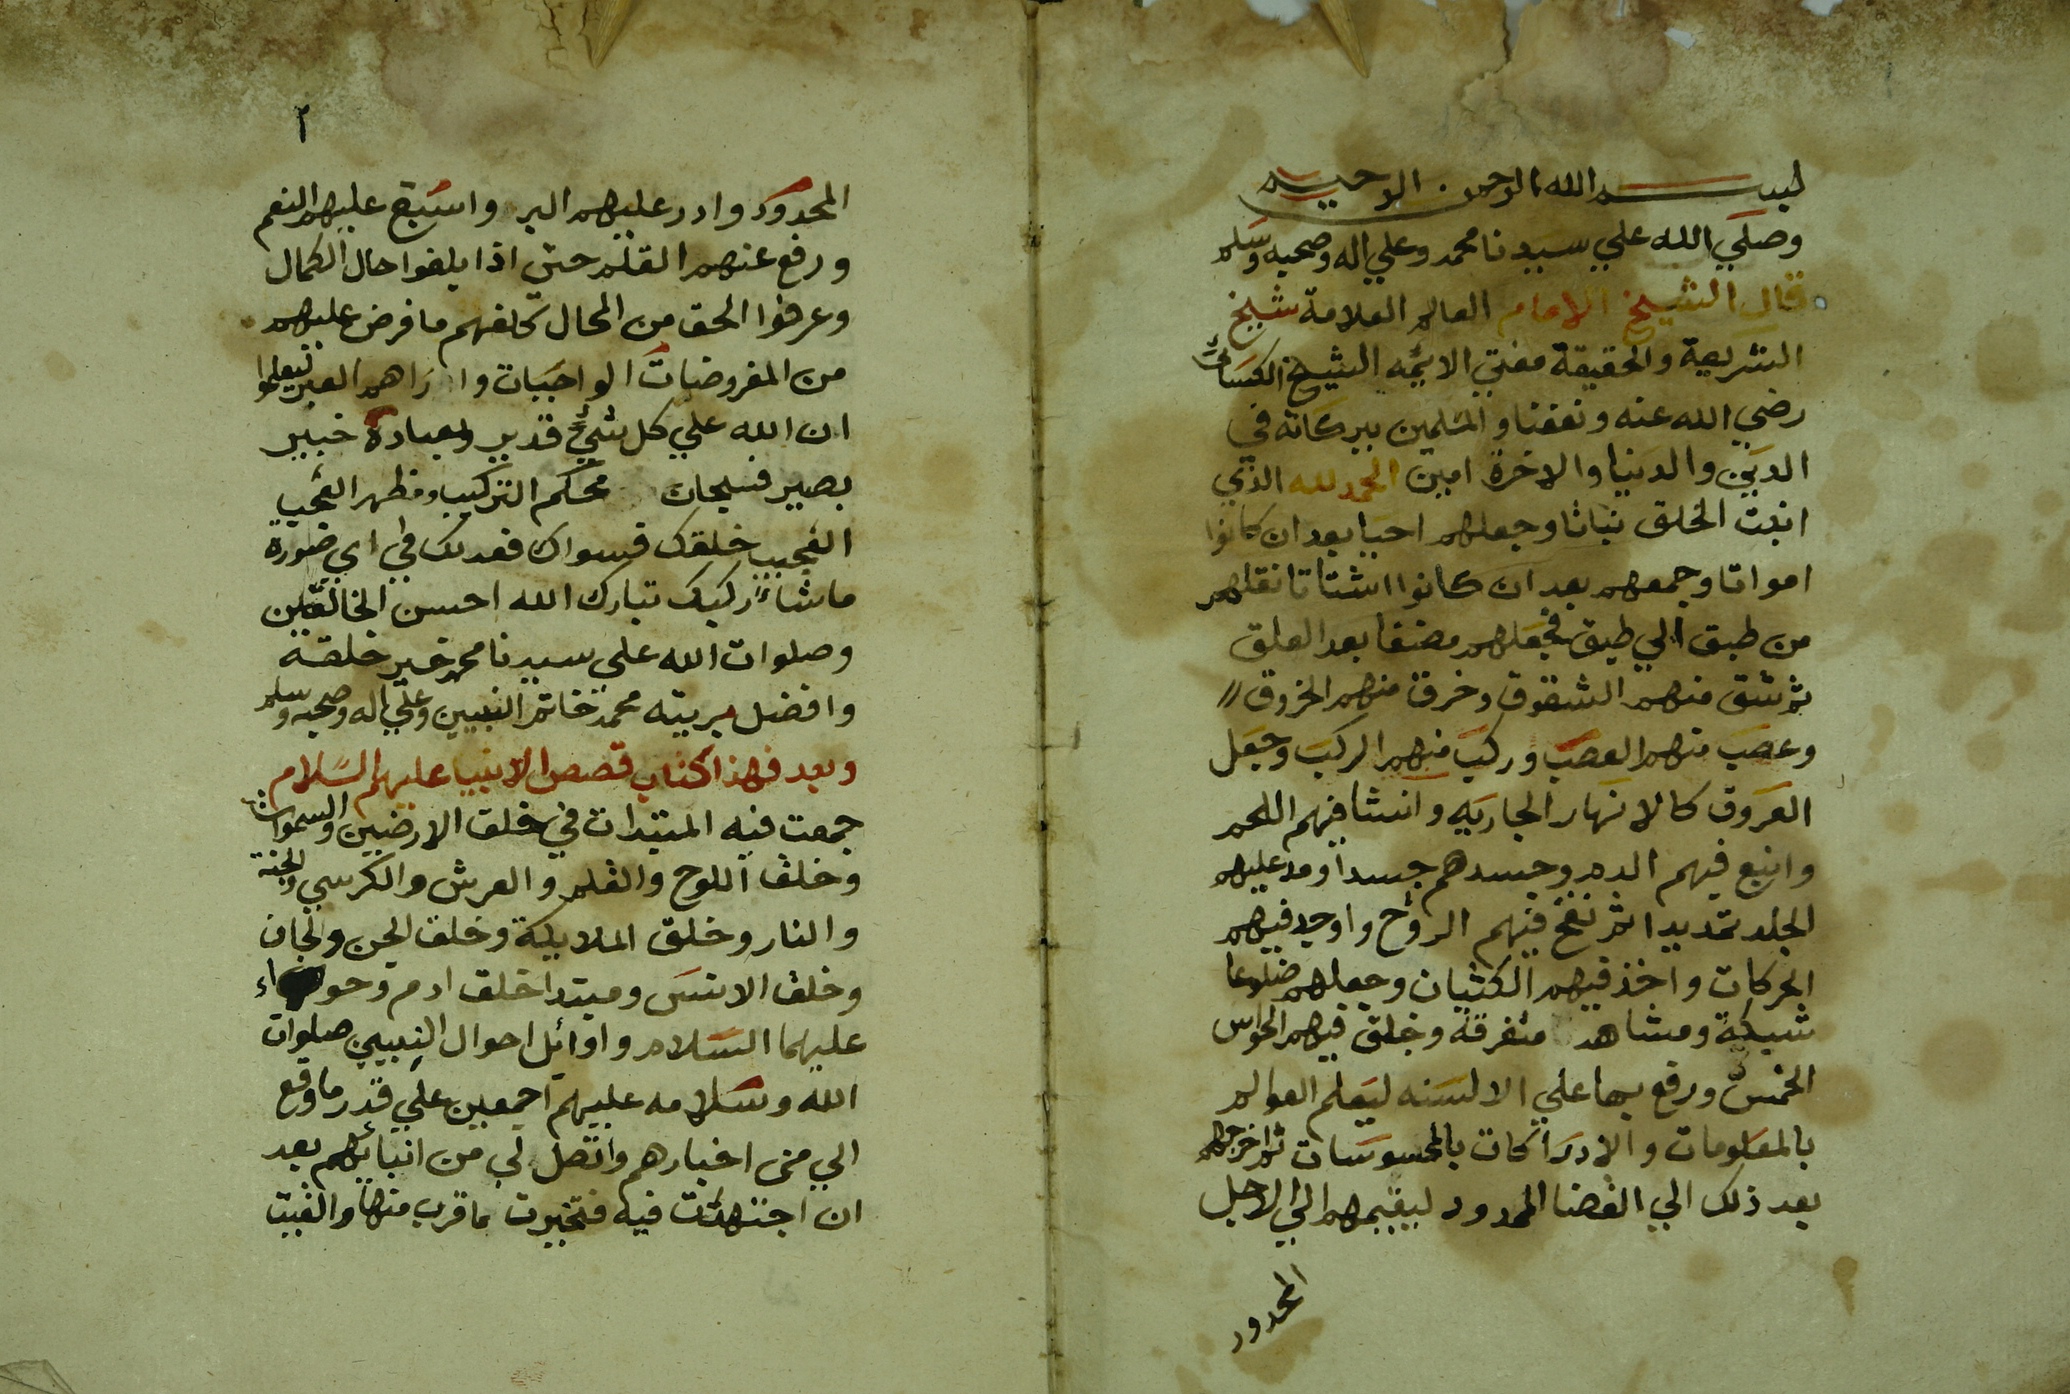 بسم الله الرحمن الرحيم
وصلي الله علي سيدنا محمد وعلي اله وصحبه وسلم
قال الشيخ الامام العالم العلامة شيخ
الشريعة والحقيقة مفتي الايمه الشيخ الكسائي
رضي الله عنه ونفعنا والمسلمين ببركاته في
الدين والدنيا والاخرة امين الحمد لله الذي
انبت الخلق نباتا وجعلهم احيا بعد ان كانوا
امواتا وجمعهم بعد ان كانوا اشتاتا نقلهم
من طبق الي طبق فجعلهم مضغا بعد العلق
ثم شق منهم الشقوق وخرق منهم الخروق
وعصب منهم العصب وركب منهم الركب وجعل
العروق كالانهار الجاريه وانشا فيهم اللحم
وانبع فيهم الدم وجسدهم جسدا ومد عليهم
الجلد تمديدا ثم نفخ فيهم الروح واوجد فيهم
الحركات واخذ فيهم الكثبان وجعلهم ضلوعا
شبكة ومشاهد متفرقة وخلق فيهم الحواس
الخمس ورفع بها علي الالسنه ليعلم العوالم
بالمعلومات والادراكات بالمحسوسات ثم اخرجهم
بعد ذلك الي الفضا الممدود ليقيمهم الي الاجل
المحدود
٢
المحدود وادر عليهم البر واسبغ عليهم النعم
ورفع عنهم القلم حتى اذا بلغوا حال الكمال
وعرفوا الحق من المحال كلفهم ما فرض عليهم
من المفروضات الواجبات واراهم العبر ليعلموا
ان الله علي كل شيء قدير وبعباده خبير
بصير فسبحان محكم التركيب ومظهر العجيب
العجيب خلقك فسواك فعدلك في اي صورة
ما شاء ركبك تبارك الله احسن الخالقين
وصلوات الله على سيدنا محمد خير خلقه
وافضل بريته محمد خاتم النبيين وعلي اله وصحبه وسلم
وبعد فهذا كتاب قصص الانبيا عليهم السلام
جمعت فيه المبتدات في خلق الارضين والسموات
وخلق اللوح والقلم والعرش والكرسي والجنة
والنار وخلق الملايكة وخلق الجن والجان
وخلق الانس ومبتدا خلق ادم وحواء
عليهما السلام واوائل احوال النبيين صلوات
الله وسلامه عليهم اجمعين علي قدر ما وقع
الي من اخبارهم واتصل لي من انبائهم بعد
ان اجتهدت فيه فتخيرت ما قرب منها والفيت